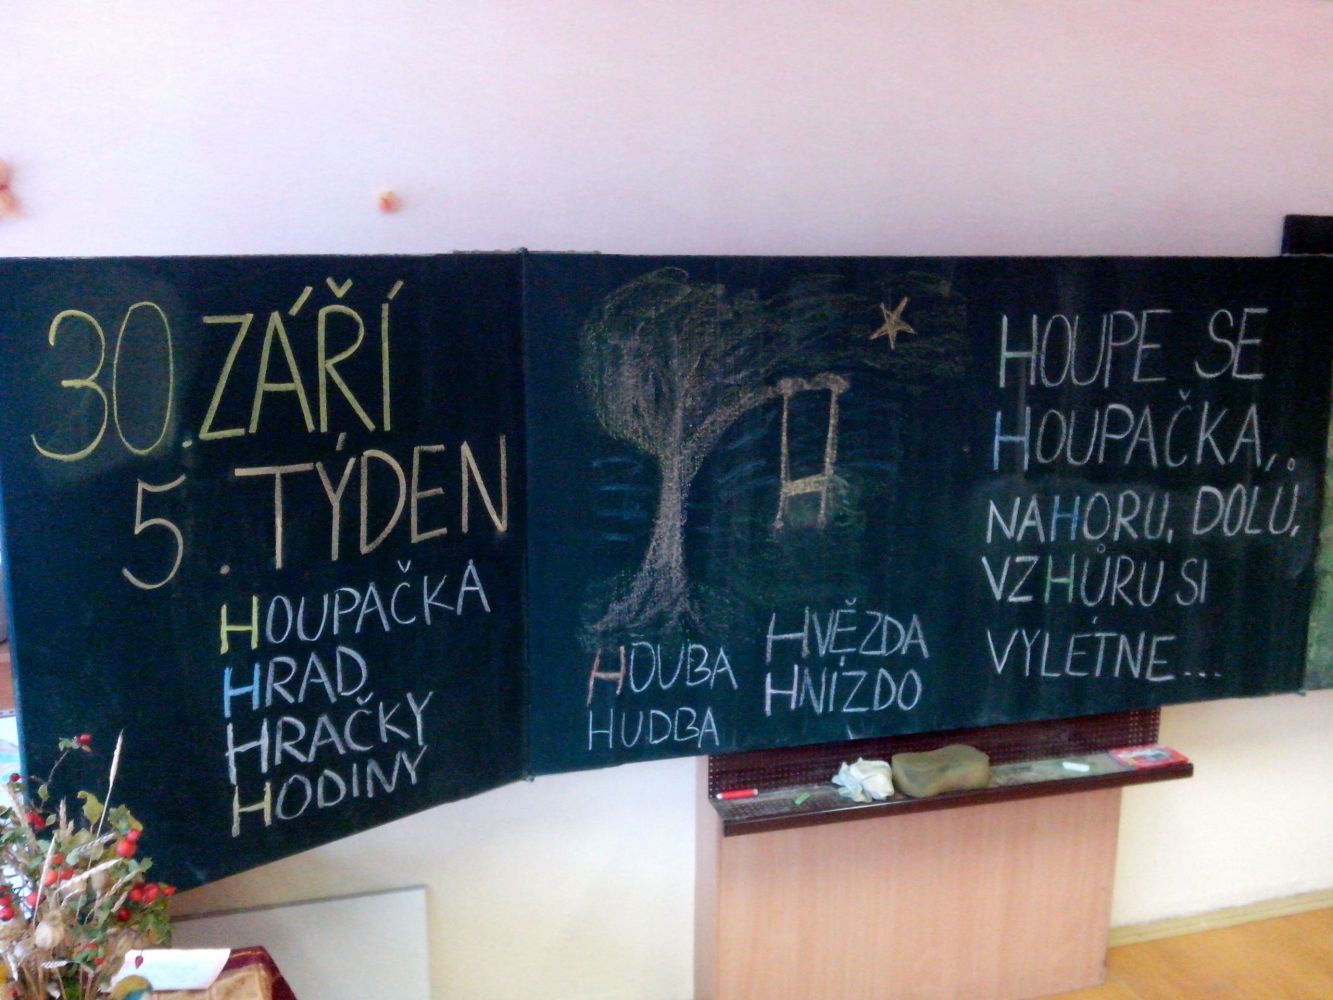 30. ZÁŘÍ
5. TÝDEN
HOUPAČKA
HRAD
HRAČKY
HODINY
HOUBA
HUDBA
HVĚZDA
HNÍZDO
HOUPE SE
HOUPAČKA,
NAHORU, DOLŮ,
VZHŮRU SI
VYLÉTNE...